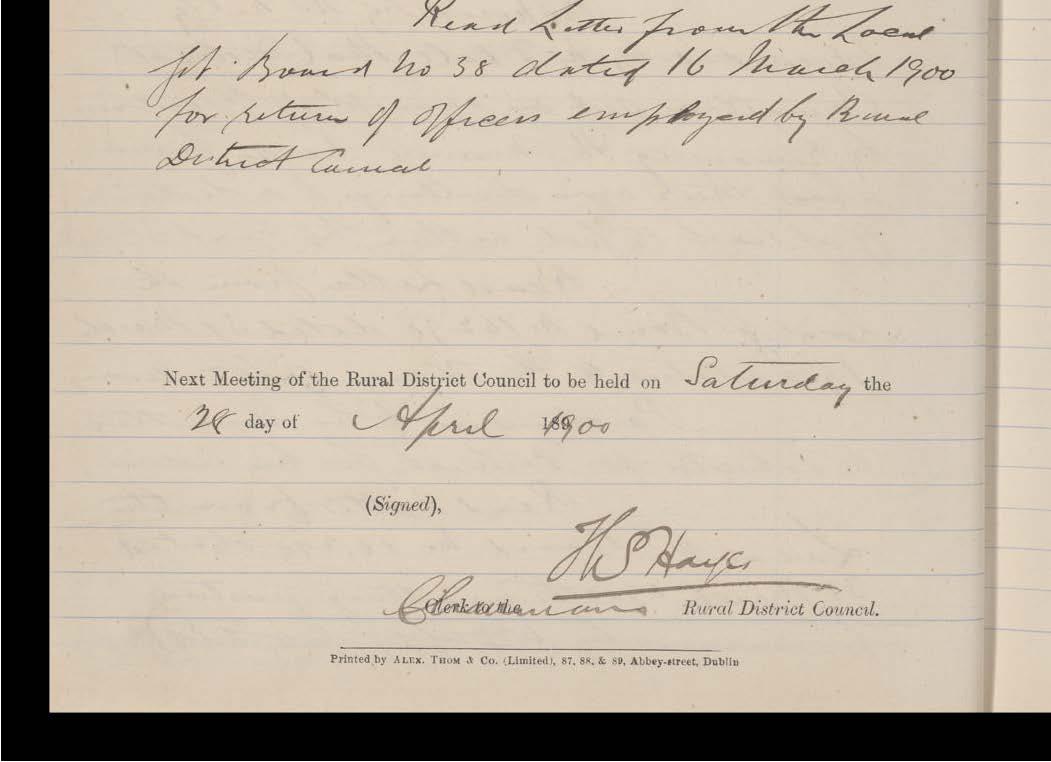 Read Letter from the Local
Gt. Board No 38 dated 16 March 1900
for return of officers employed by Rural
District Council
Next Meeting of the Rural District Council to be held on Saturday the
28 day of April 1900
(Signed),
H S Hayes
Chairman Rural District Council.
Printed by ALEX. THOM & Co. (Limited), 87, 88, & 89, Abbey-street, Dublin